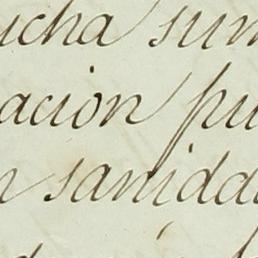 ucha sum
acion pu
n sanidda